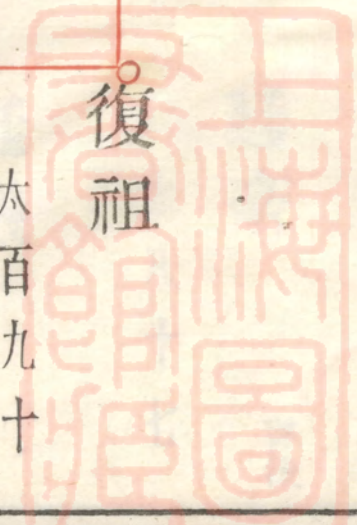 復祖
太百九十
上海圖
書館藏